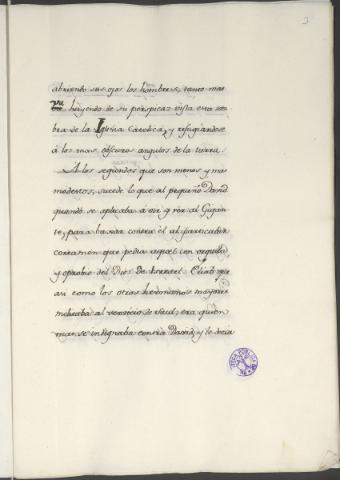 3
abriendo sus ojos los hombres, tanto mas
va huyendo de su perspicaz vista esta som
bra de la Iglesia Catolica, y refugiandose
á los mas obscuros angulos de la tierra.
A los segundos que son menos y mas
modestos, sucede lo que al pequeño David
quando se aplicaba á oir y ver al Gigan
te, para baxar contra él al particular
certamen que pedia aquel con orgullo
y oprobio del Dios de Israel. Eliab que
asi como los otros hermanos mayores
militaba al servicio de Saul, era quien
mas se indignaba contra David, y le decia